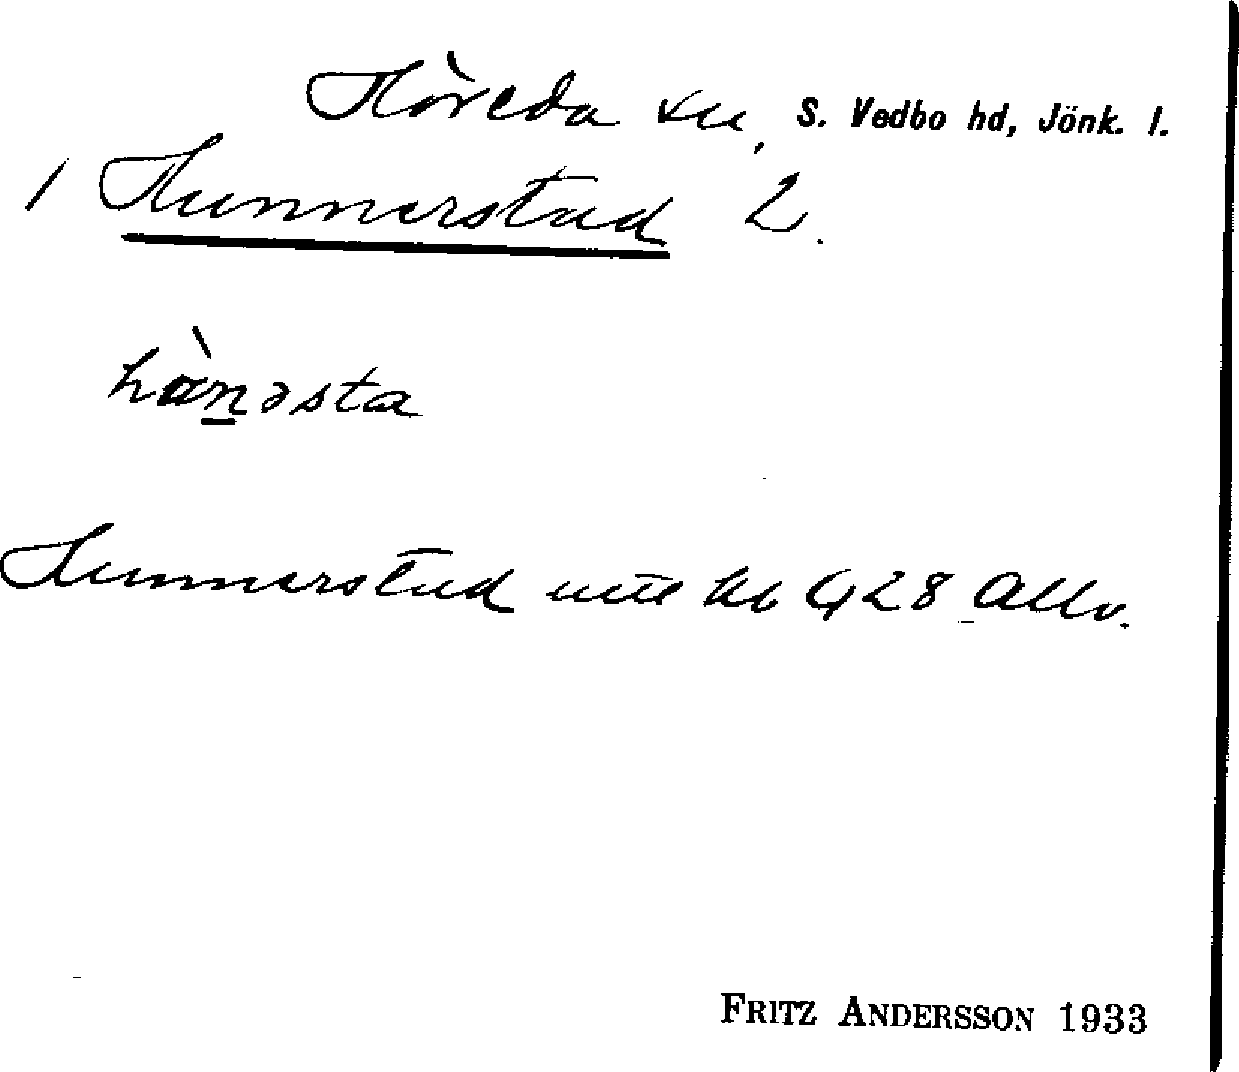 Höreda sn, S. Vedbo hd, Jönk. l.
1 Hunnerstad 2.
hàn̲əsta
Hunnerstad utt kb G 28 Allv.
FRITZ ANDERSSON 1933